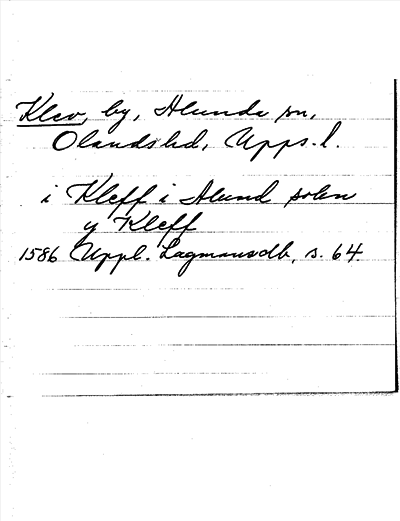 Klev, by, Alunda sn,
Olands hd, Upps. l.
i Kleff i Alund sokn
y Kleff
1586 Uppl. Lagmansdb, s. 64.